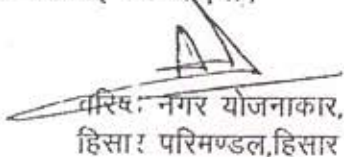 वरिष्ठ नगर योजनाकार,
हिसार परिमण्डल,हिसार